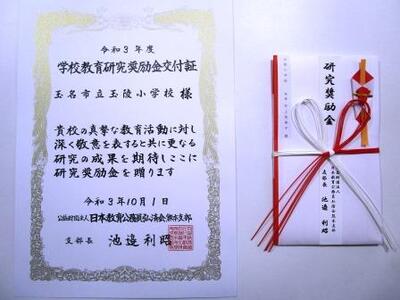 令和3年度
学校教育研究奨励金交付証
玉名市立玉陵小学校 様
貴校の真摯な教育活動に対し
深く敬意を表すると共に更なる
研究の成果を期待しここに
研究奨励金を贈ります
令和3年10月1日
公益財団法人日本教育公務員弘済会熊本支部
支部長 池邉利昭
研究奨励金
支部長 池邉利昭